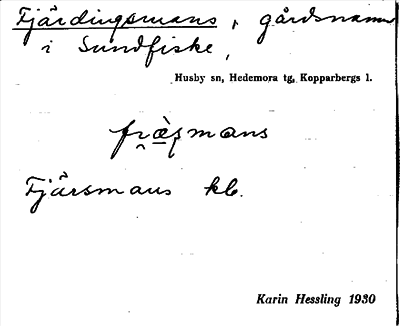 Fjärdingsmans, gårdsnamn
i Sundfiske,
Husby sn, Hedemora tg, Kopparbergs l.
Fjärsmans kb.
Karin Hessling 1930